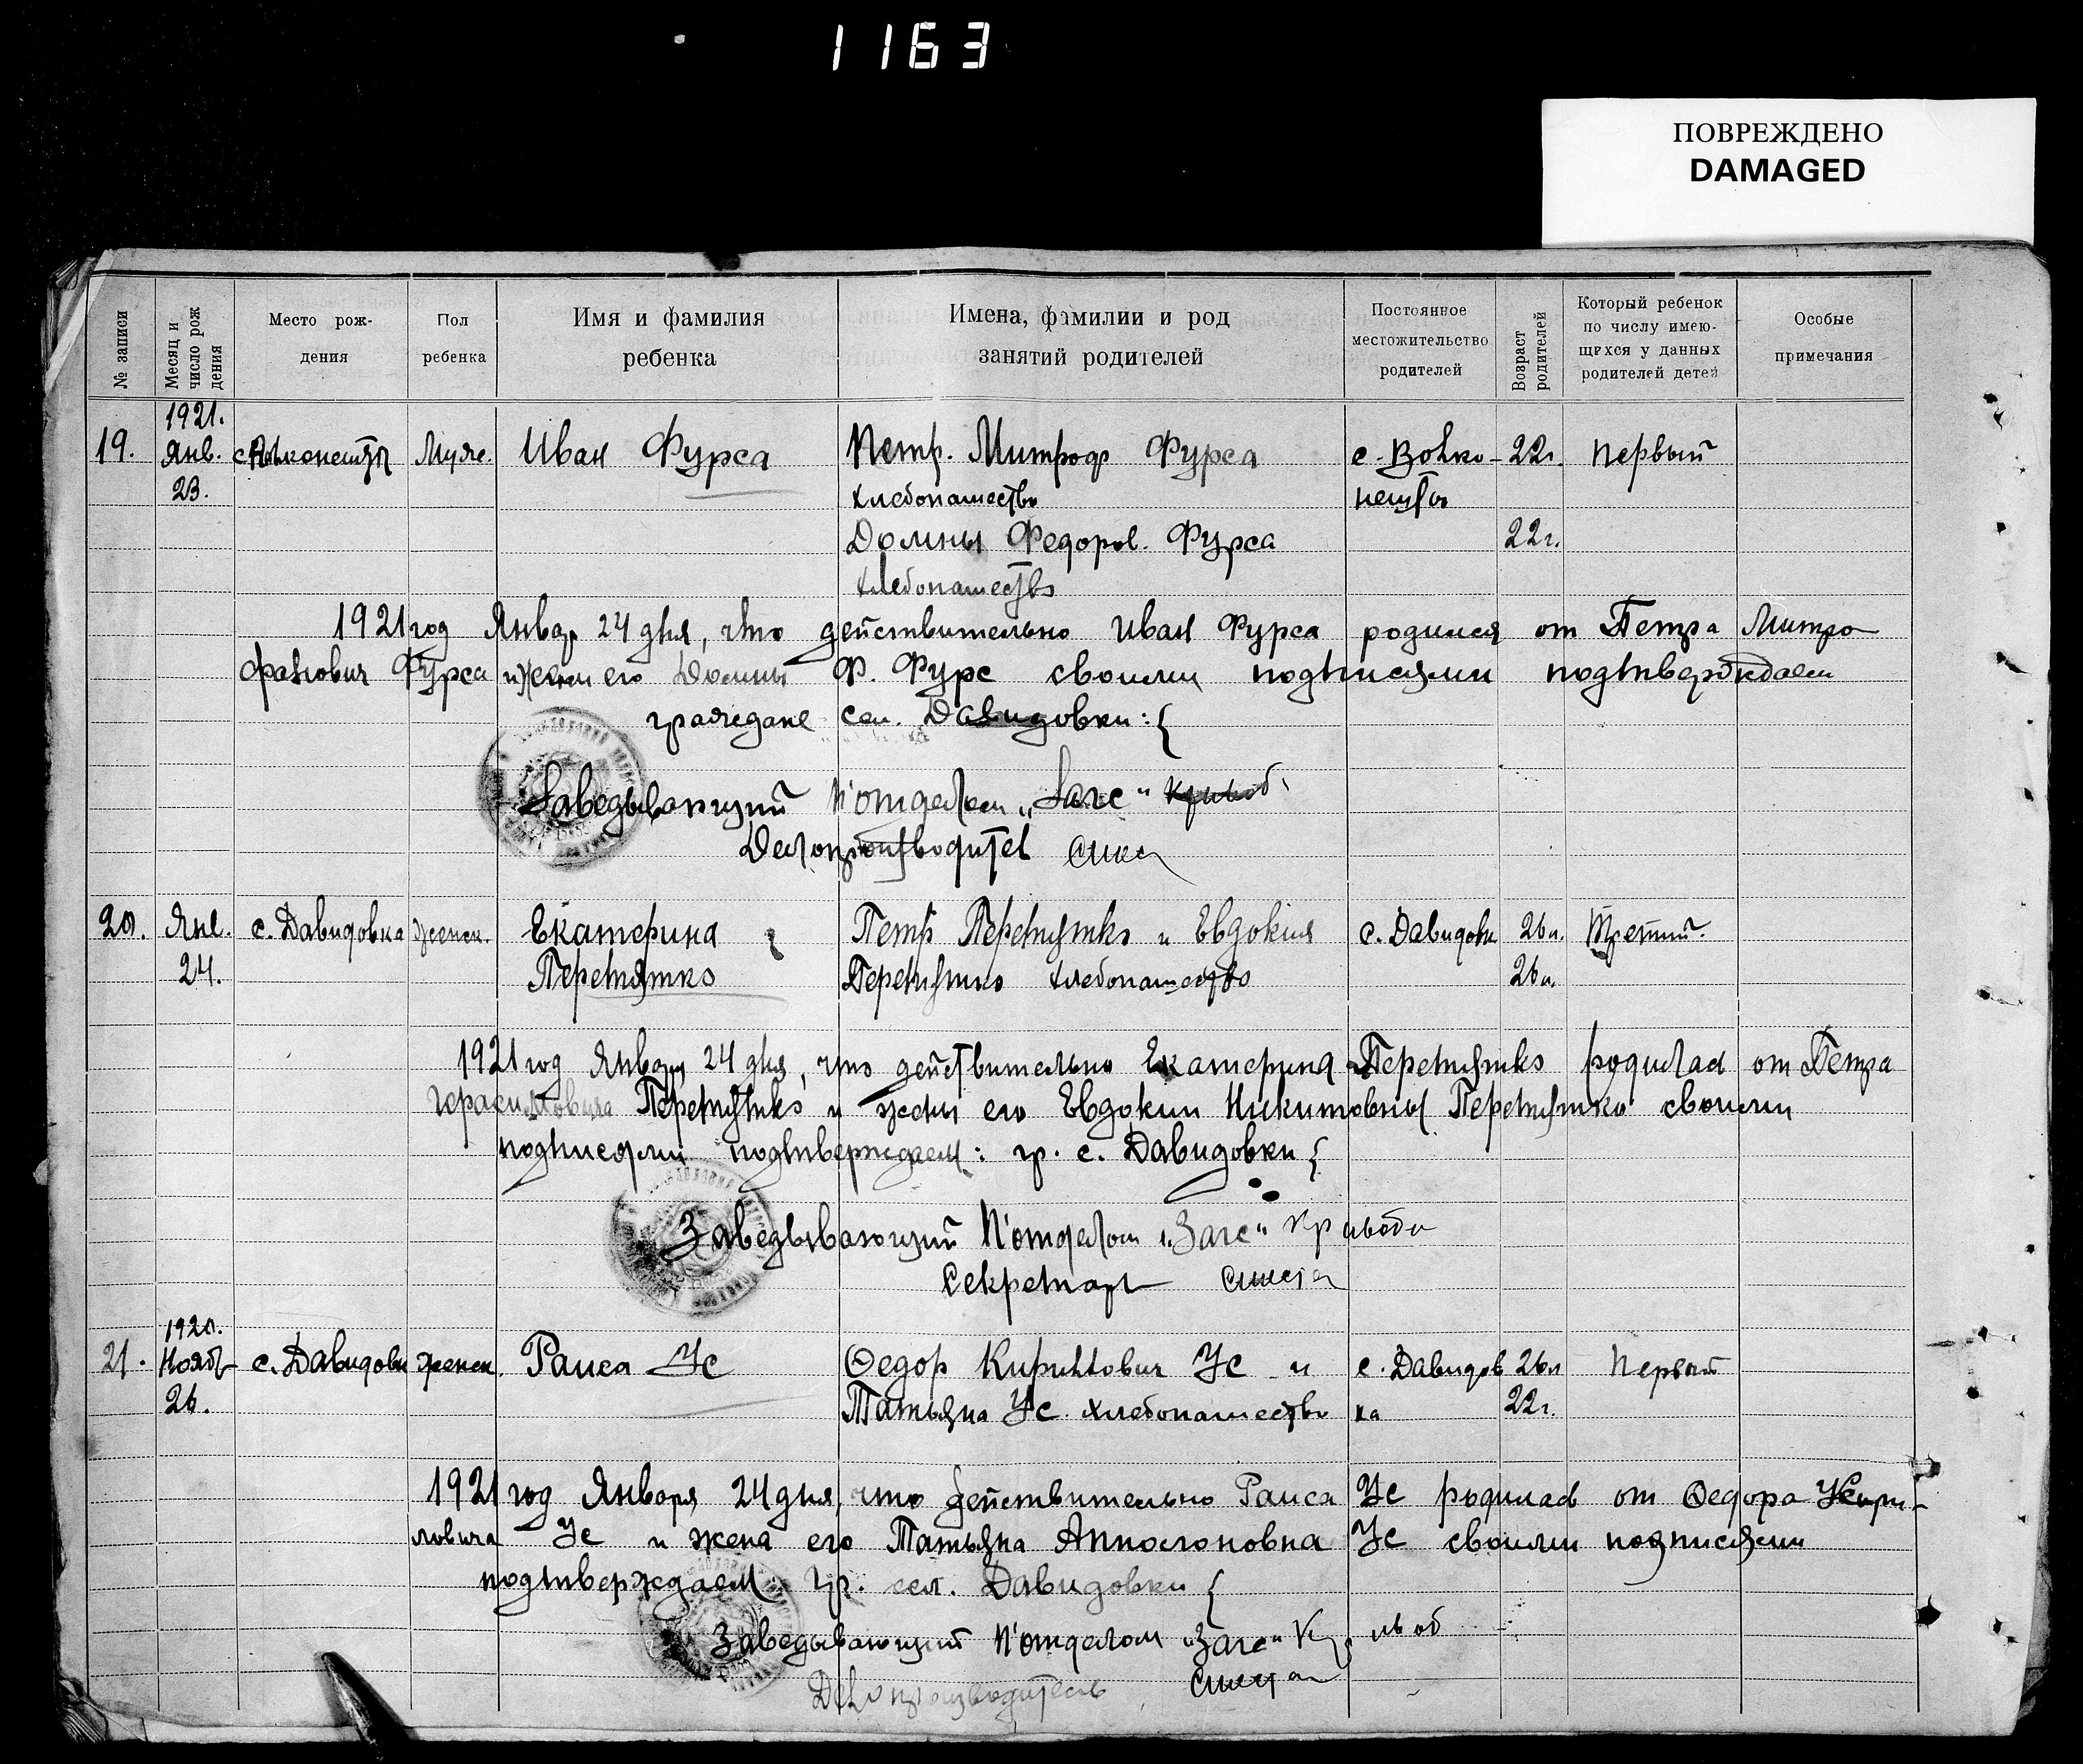 1163
ПОВРЕЖДЕНО
DAMAGED
№ записи
Месяц и число рож дения
Место рож-
дения
Пол
ребенка
Имя и фамилия
ребенка
Имена, фамилии и род
занятий родителей
Постоянное
местожительство
родителей
Возраст родителей
Который ребенок
по числу имею-
щихся у данных
родителей детей
Особые
примечания
1921.
19. Янв. Муж. Иван Фурса Петр. Митроф Фурса с. Волко- 22г. Первый
23. хлебопашество
Домны Федоров. Фурса 22г.
хлебопашество
1921 год Январ 24 дня, что действительно Иван Фурса родился от Петра Митро
фанович Фурса и жены его Домны Ф. Фурс своими подписями подтверждаем
граждане сел. Давидовки: {
Заведывающий П'отделом „Загс"
Делопроизводител
20. Янв. с. Давидовка женск. Екатерина Петр Перетятко и Евдокия с. Давидовк 26л. Третий.
24. Перетятко Перетятко хлебопашество 26л.
1921 год Января 24 дня, что действительно Екатерина Перетятко родилас от Петра
Герасимовича Перетятко и жены его Евдокии Никитовны Перетятко своими
подписями подтверждаем: гр. с. Давидовки {
Заведывающий П'отделом „Загс"
Секретарь
1920.
21. Нояб с. Давидовк женск. Раиса Ус Федор Кирилович Ус и с. Давидов 26л Первый
26. Татьяна Ус хлебопашество ка 22г.
1921 год Января 24 дня, что действительно Раиса Ус родилась от Федора Кири-
ловича Ус и жена его Татьяна Апполоновна Ус своими подписями
подтверждаем гр. сел. Давидовки {
Заведывающий П'отделом „Загс"
Делопроизводитель